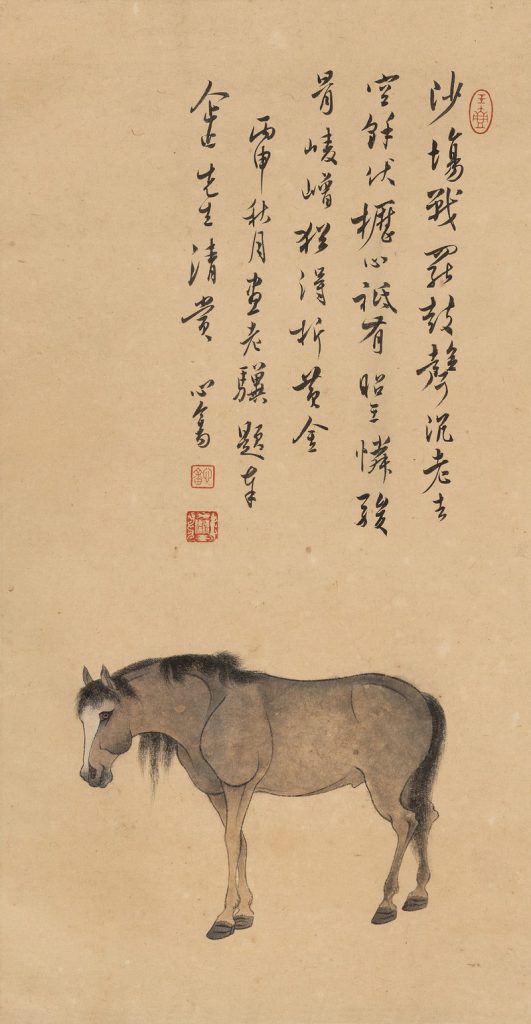 沙塲戰罷鼓聲沉老去
空餘伏櫪心祗有昭王憐駿
骨崚嶒猶得折黃金
丙申秋月畫老驥題奉
先生清賞 心畬
玉壺